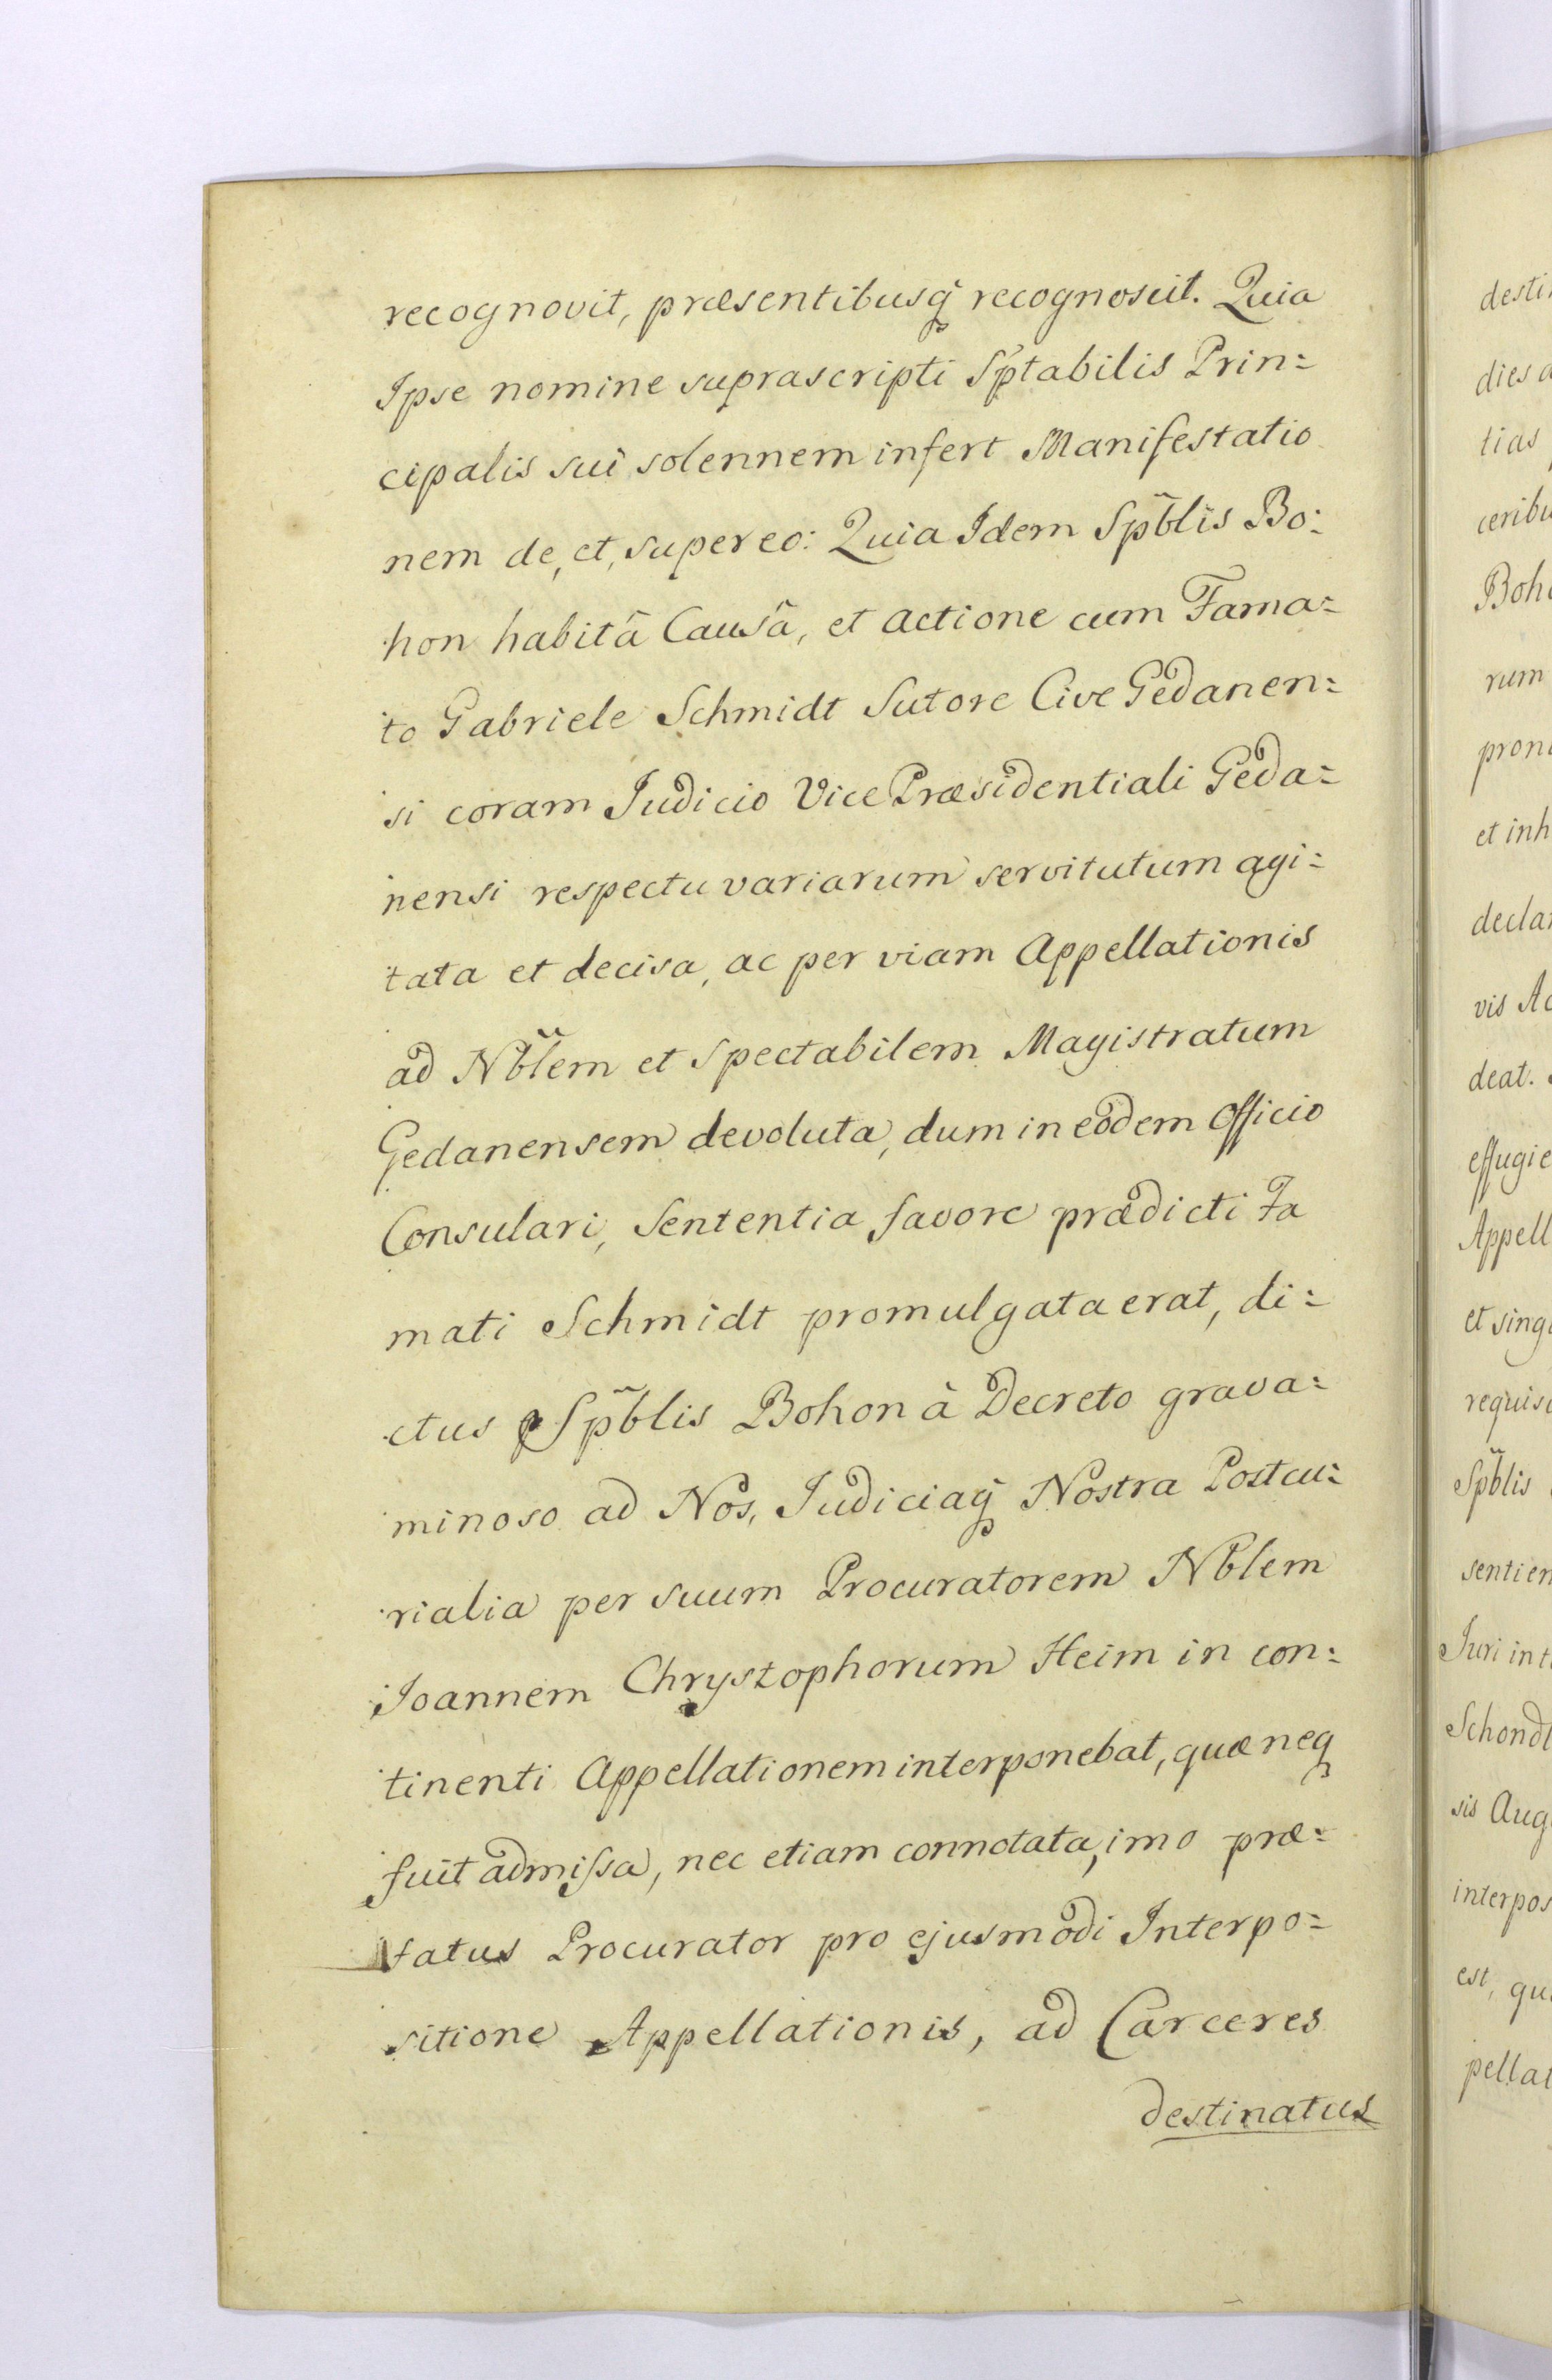 recognovit, præsentibusq̃ recognoscit. Quia
Ipse nomine suprascripti Sp̃tabilis Prin=
cipalis sui solennem infert Manifestatio
nem de, et, super eo: Quia Idem Sp̃blis Bo:
hon habitâ Causâ, et actione cum Fama=
to Gabriele Schmidt Sutore Cive Gedanen=
si coram Judicio Vice Præsidentiali Geda=
nensi respectu variarum servitutum agi=
tata et decisa, ac per viam Appellationis
ad Nb̃lem et Spectabilem Magistratum
Gedanensem devoluta, dum in eodem Officio
Consulari, Sententia favore prædicti Fa
mati Schmidt promulgata erat, di=
ctus Sp̃blis Bohon à Decreto grava=
minoso ad Nos, Judiciaq̃ Nostra Postcu=
rialia per suum Procuratorem Nblem
Joannem Chrysztophorum Heim in con=
tinenti Appellationem interponebat, quæ neq
fuit admissa, nec etiam connotata, imo præ=
fatus Procurator pro ejusmodi Interpo=
sitione Appellationis, ad Carceres
destinatus
desti
dies
tias
ceribu
Boh
rum
pron
et inh
decla
vis Ac
deat.
effugie
Appell
et sing
requis
Sp̃blis
sentien
Juri int
Schondt
sis Aug
interpos
est, qu
pellat